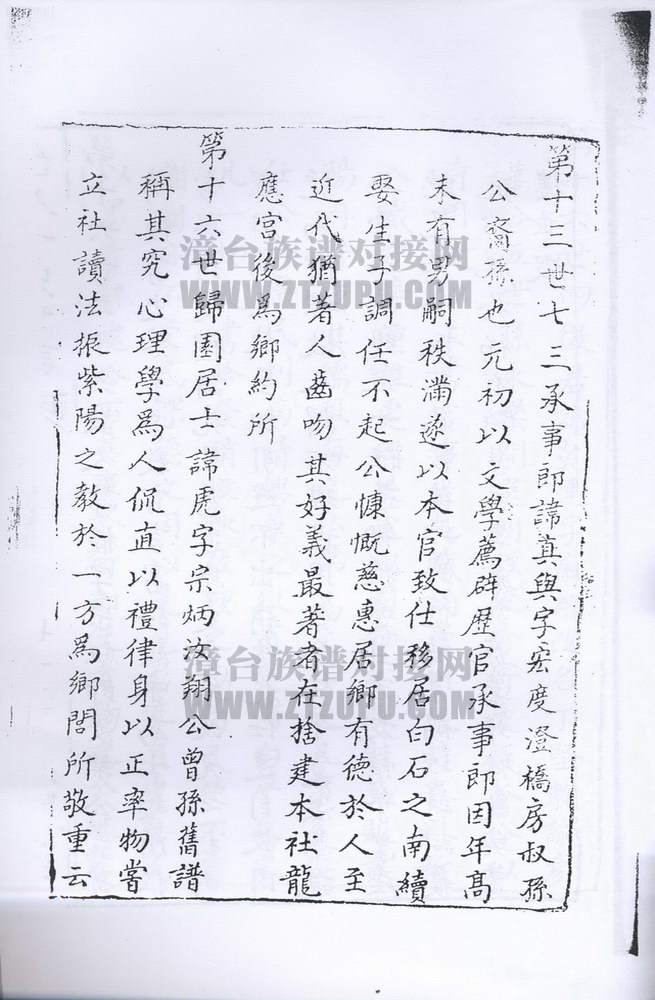 第十三世七三承事郎諱真與字宏度澄橋房叔孫
公裔孫也元初以文學薦辟歷官承事郎因年髙
未有男嗣秩滿遂以本官致仕移居白石之南續
娶生子調任不起公慷慨慈惠居鄉有德於人至
近代猶著人齒吻其好義最著者在捨建本社龍
應宮後爲鄉約所
第十六世歸園居士諱虎字宗炳汝翔公曾孫舊譜
稱其究心理學爲人侃直以禮律身以正率物嘗
立社讀法振紫陽之教於一方爲鄉閭所敬重云
漳台族谱对接网
WWW.ZTZUPU.COM
漳台族谱对接网
WWW.ZTZUPU.COM